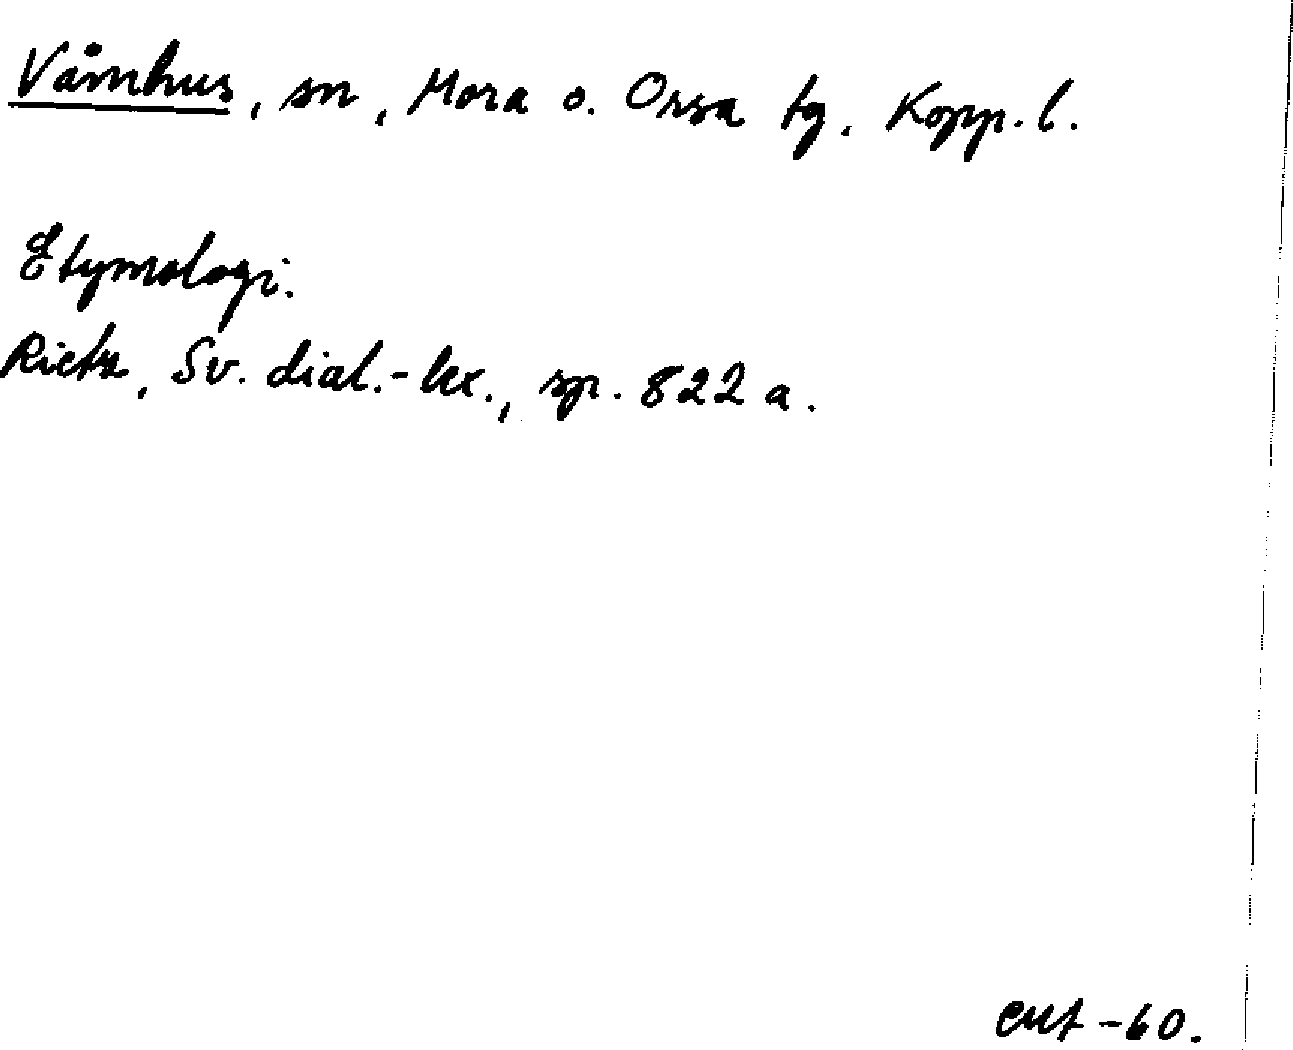 Våmhus, sn, Mora o. Orsa tg. Kopp. l.
Etymologi.
Rietz, Sv. dial.-lex., sp. 822 a.
-60.